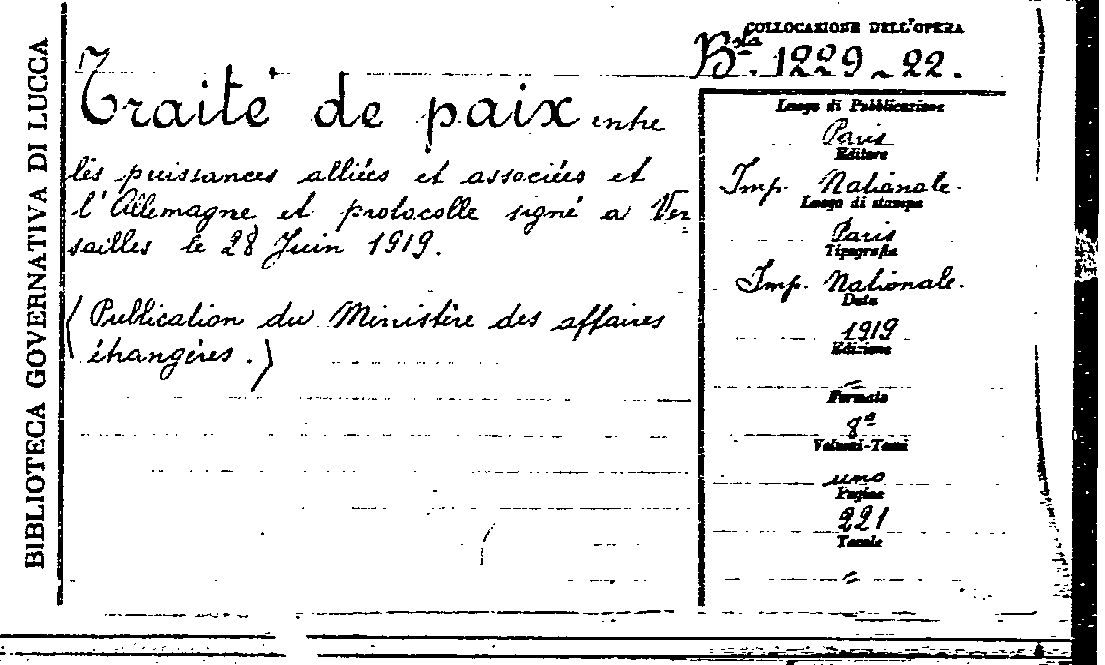 BIBLIOTECA GOVERNATIVA DI LUCCA
COLLOCAZIONE DELL'OPERA
Bsta. 1229 - 22.
Traité de paix entre
les puissances alliées et associées et
l'Allemagne et protocolle signé a Ver
sailles le 28 Juin 1919.
(Publication du Ministère des affaires
étrangères.)
Luogo di Pubblicazione
Paris
Editore
Imp. Nationale.
Luogo di stampa
Paris
Tipografia
Imp. Nationale.
Data
1919
Edizione
=
Formato
8°
Volumi-Tomi
uno
Pagine
221
Tavole
=